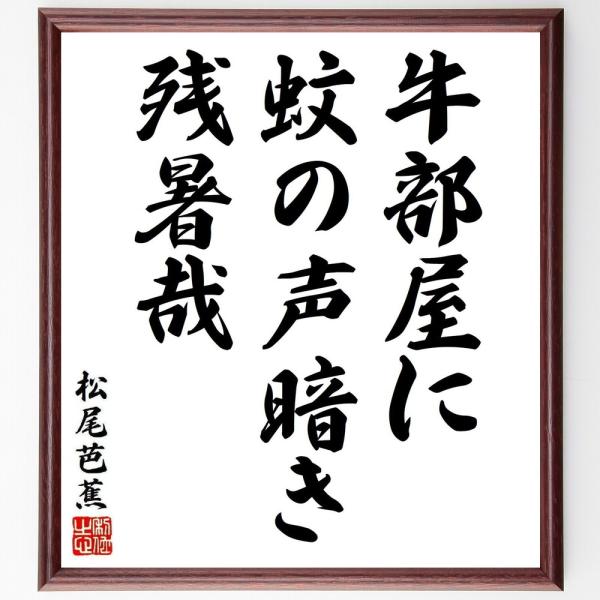 牛部屋に
蚊の声暗き
残暑哉
松尾芭蕉